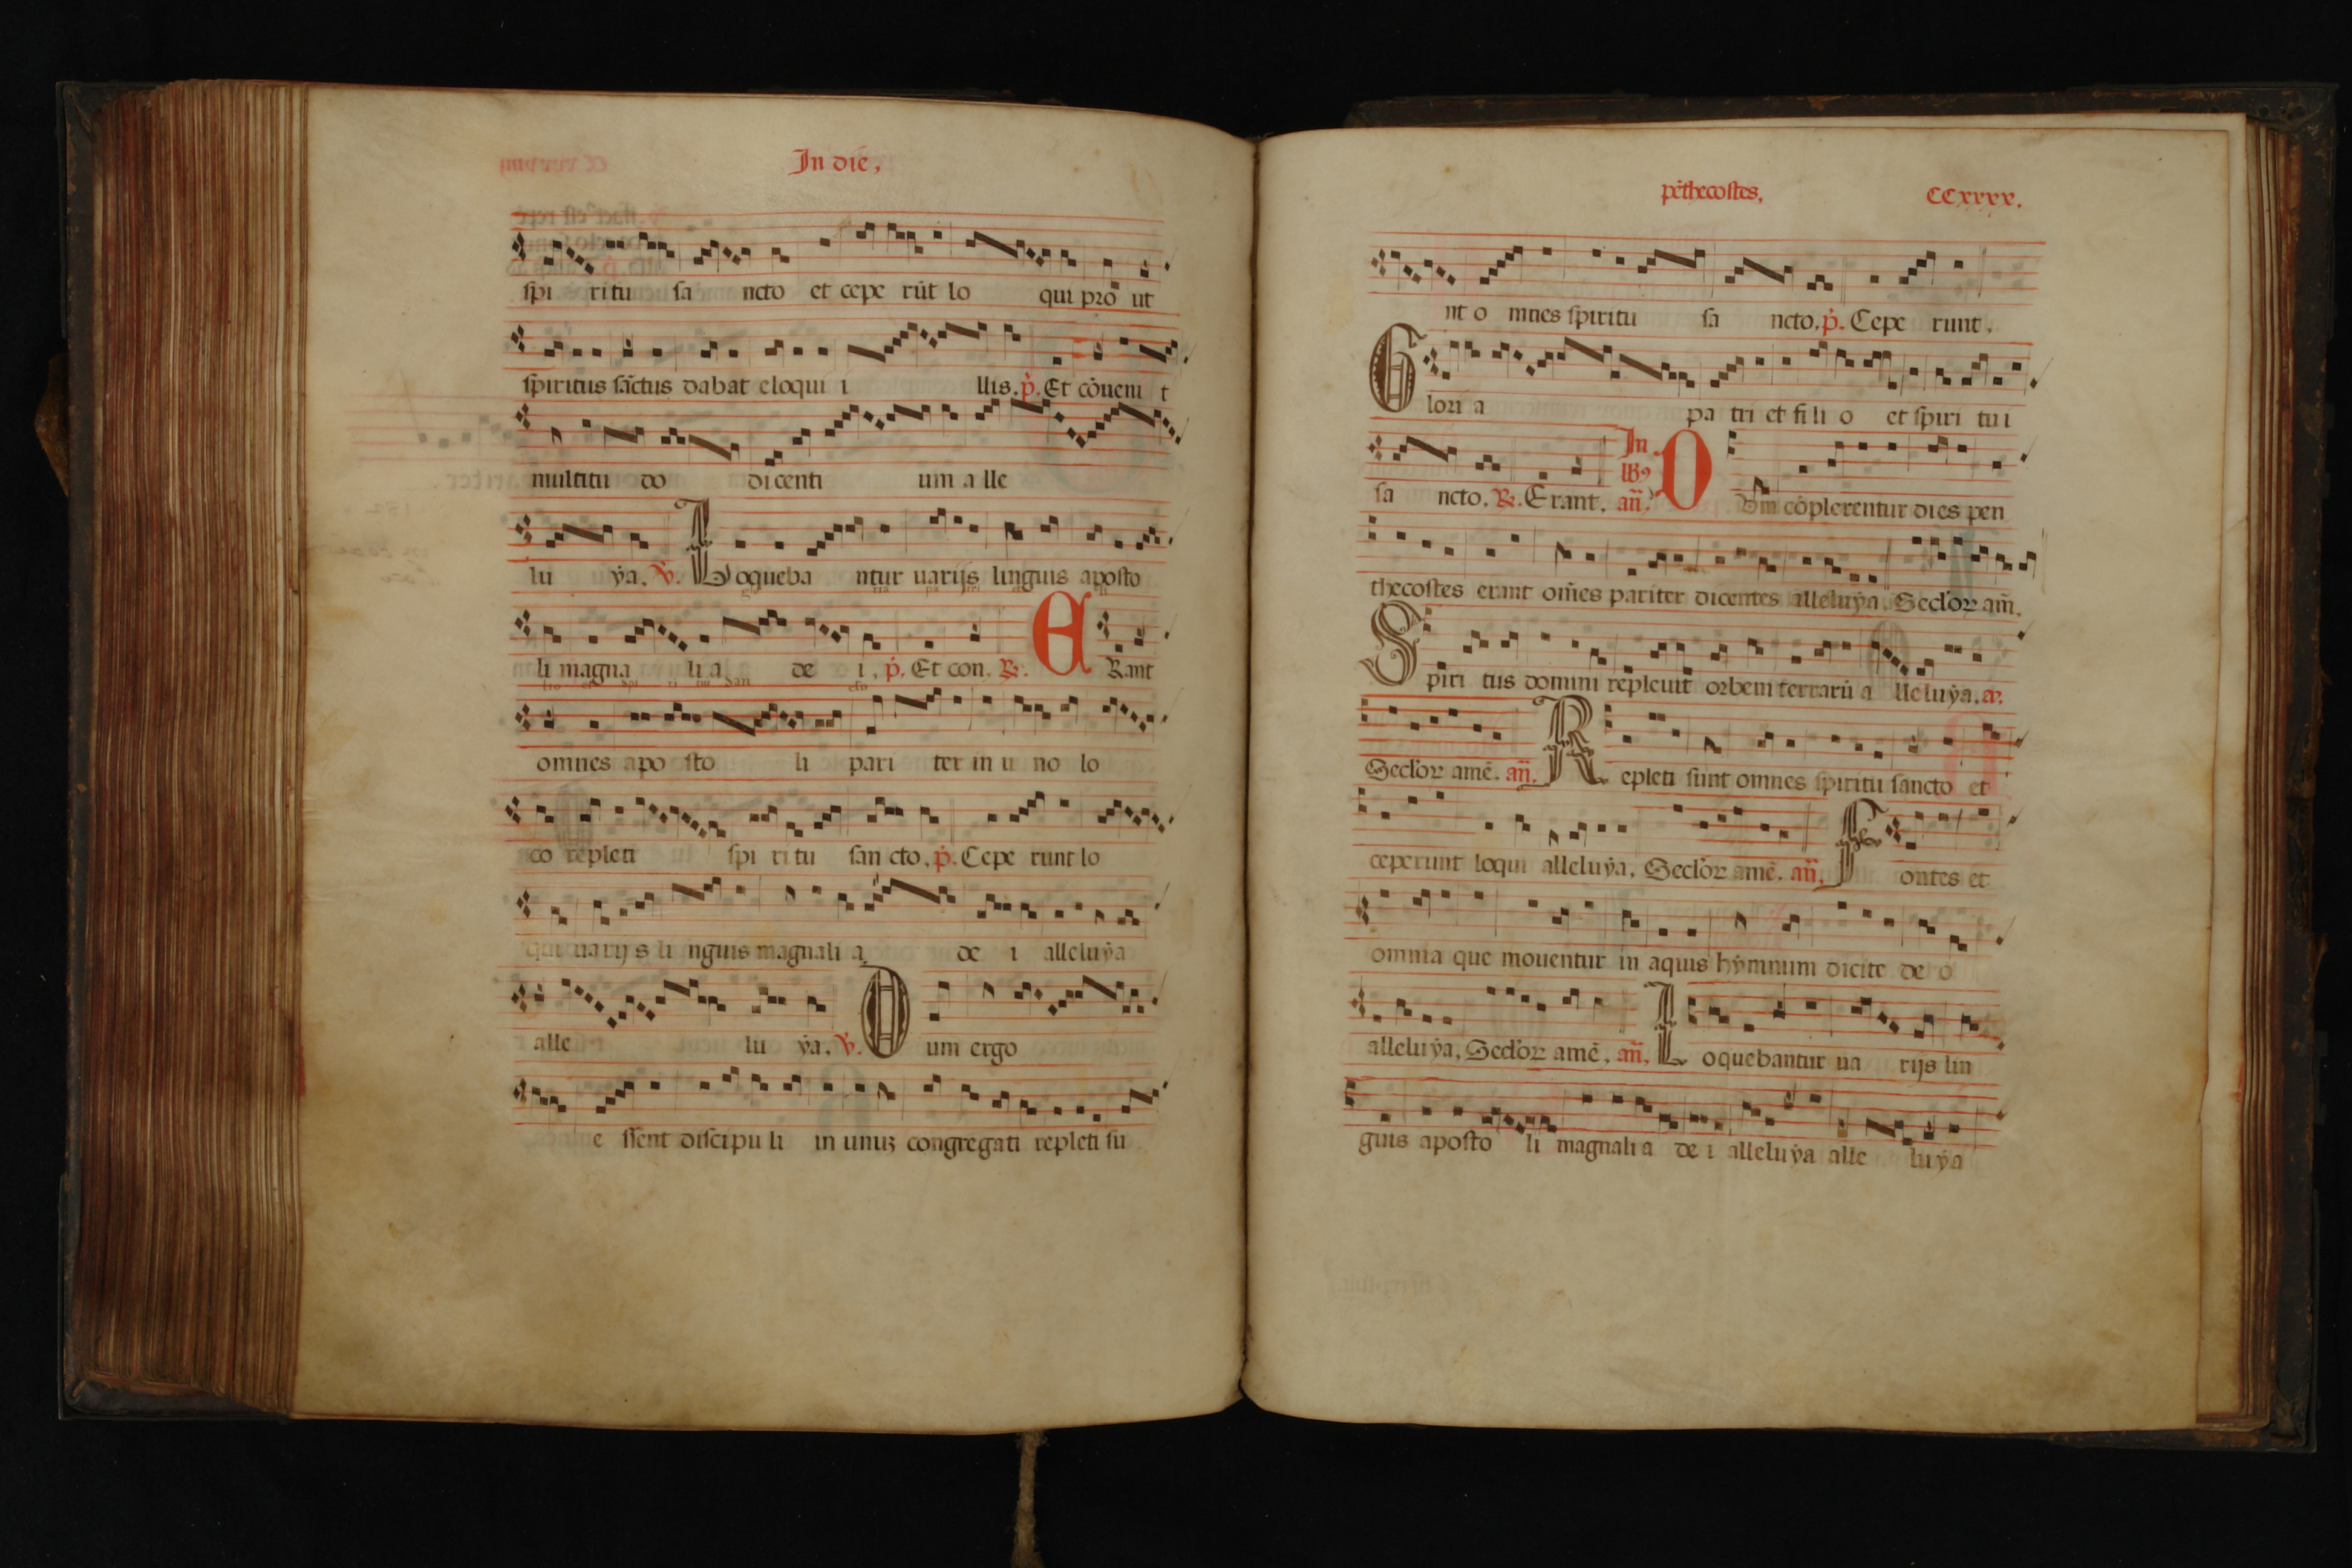 In die,
spi ritu sa ncto et cepe rūt lo qui pro ut
spiritus sāctus dabat eloqui i llis. p̄. Et cōueni t
multitu do dicenti um a lle
lu ẏa. v̄. Loqueba ntur uarijs linguis aposto
li magna li a de i, p̄. Et con. ℟. ERant
omnes apo sto li pari ter in u no lo
co repleti spi ritu san cto, p̄. Cepe runt lo
qui uarij s li nguis magnali a de i alleluẏa
alle lu ẏa. v̄. Dum ergo
e ssent discipu li in unuꝫ congregati repleti su
pēthecostes,
CCxxxx.
nt o mnes spiritu sa ncto. p̄. Cepe runt,
Glori a pa tri et fili o et spiri tui
sa ncto. ℟. Erant. In lb9 an̄. DUm cōplerentur dies pen
thecostes erant om̄es pariter dicentes alleluẏa. Seclōꝝ am̄.
Spiri tus domini repleuit orbem terrarū a lleluẏa. an̄.
Seclōꝝ amē. an̄. Repleti sunt omnes spiritu sancto et
ceperunt loqui alleluẏa, Seclōꝝ amē. an̄. Fontes et
omnia que mouentur in aquis hẏmnum dicite de o
alleluẏa, Seclōꝝ amē, an̄, Loquebantur ua rijs lin
guis aposto li magnali a de i alleluẏa alle luẏa